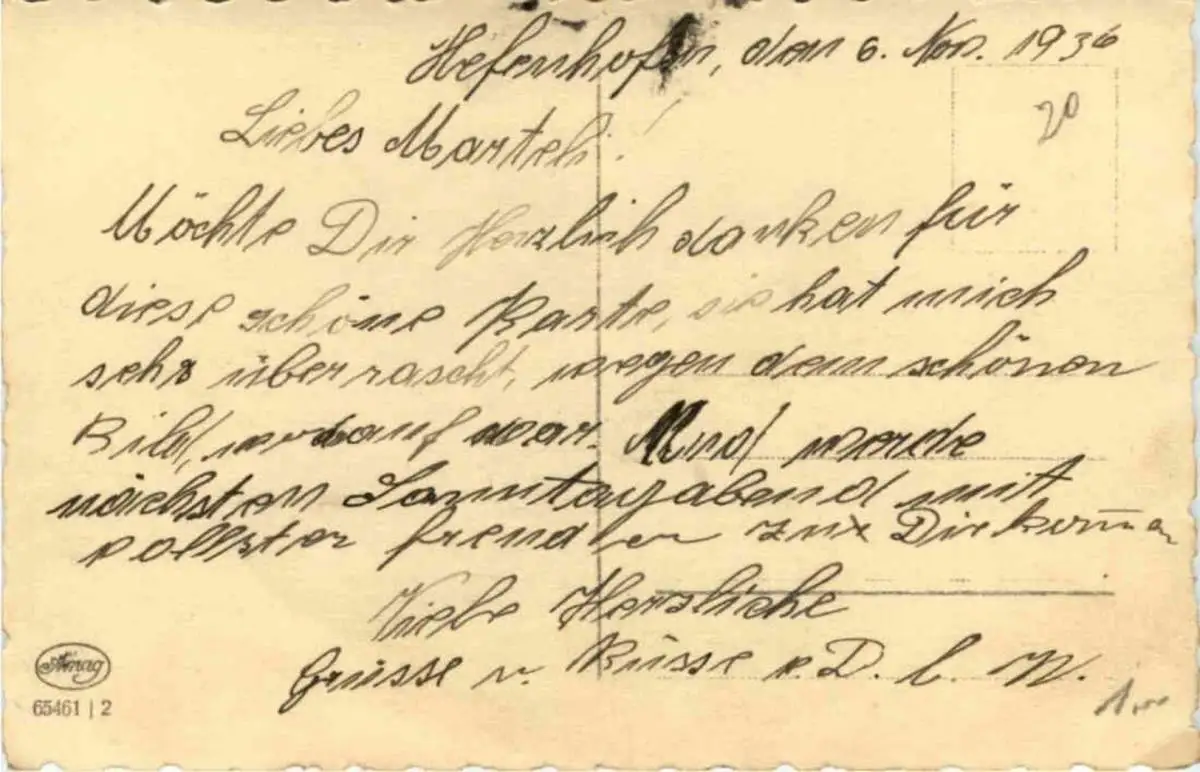 Hefenhofen, den 6. Nov. 1936
20
Liebes Marteli!
Möchte Dir Herzlich danken für
diese schöne Karte, sie hat mich
sehr überrascht, wegen dem schönen
Bild, wo darauf war. Und werde
nächsten Sonntagabend mit
vollster freuden zu Dir kommen
Viele Herzliche
Grüsse u. Küsse v. D. l. W.
Amag
65461 | 2